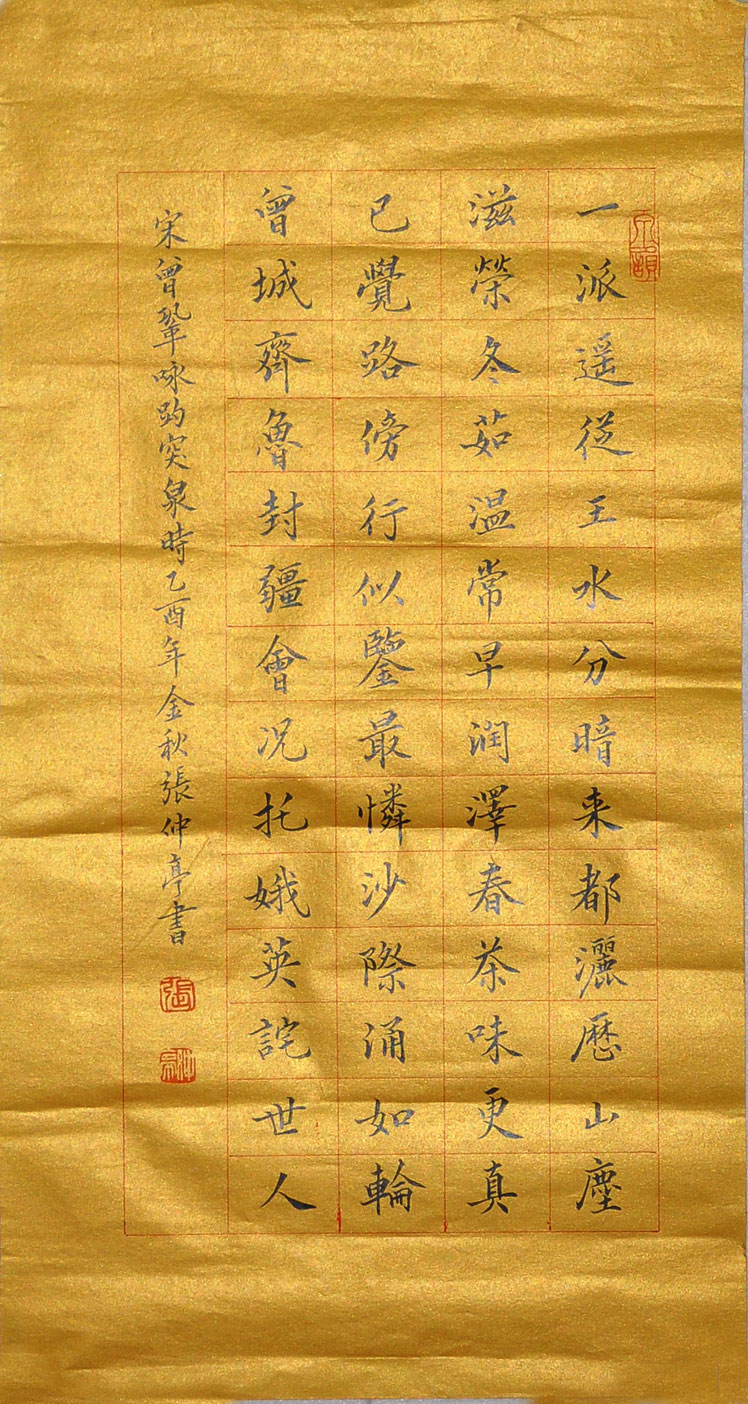 一派遥從王水分暗来都灑厯山塵
滋榮冬茹温常早润澤春茶味更真
已覺路傍行似鑒最憐沙際涌如輪
曾城齊魯封疆會况托娥英詫世人
宋曾鞏咏趵突泉時乙酉年金秋張仲亭書
張